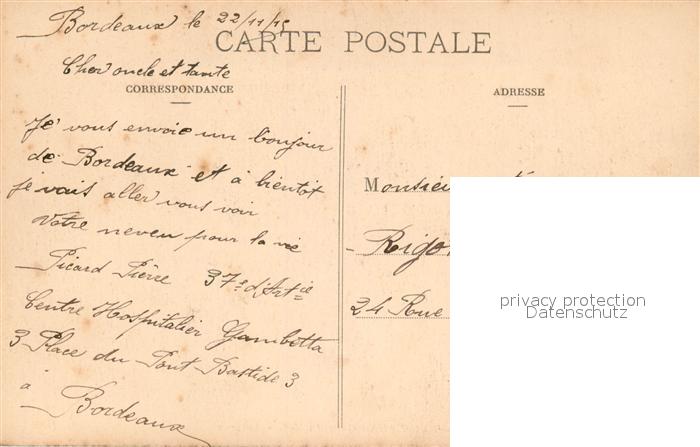 Bordeaux le 22/11/15
CARTE POSTALE
Cher oncle et tante
CORRESPONDANCE
ADRESSE
Je vous envoie un bonjour
de Bordeaux et à bientot
je vais aller vous voir
Votre neveu pour la vie
Picard Pierre 37e d'Artie
Centre Hospitalier Gambetta
3 Place du Pont Bastide 3
à Bordeaux
Monsieu
Rigo
24 Rue
privacy protection
Datenschutz